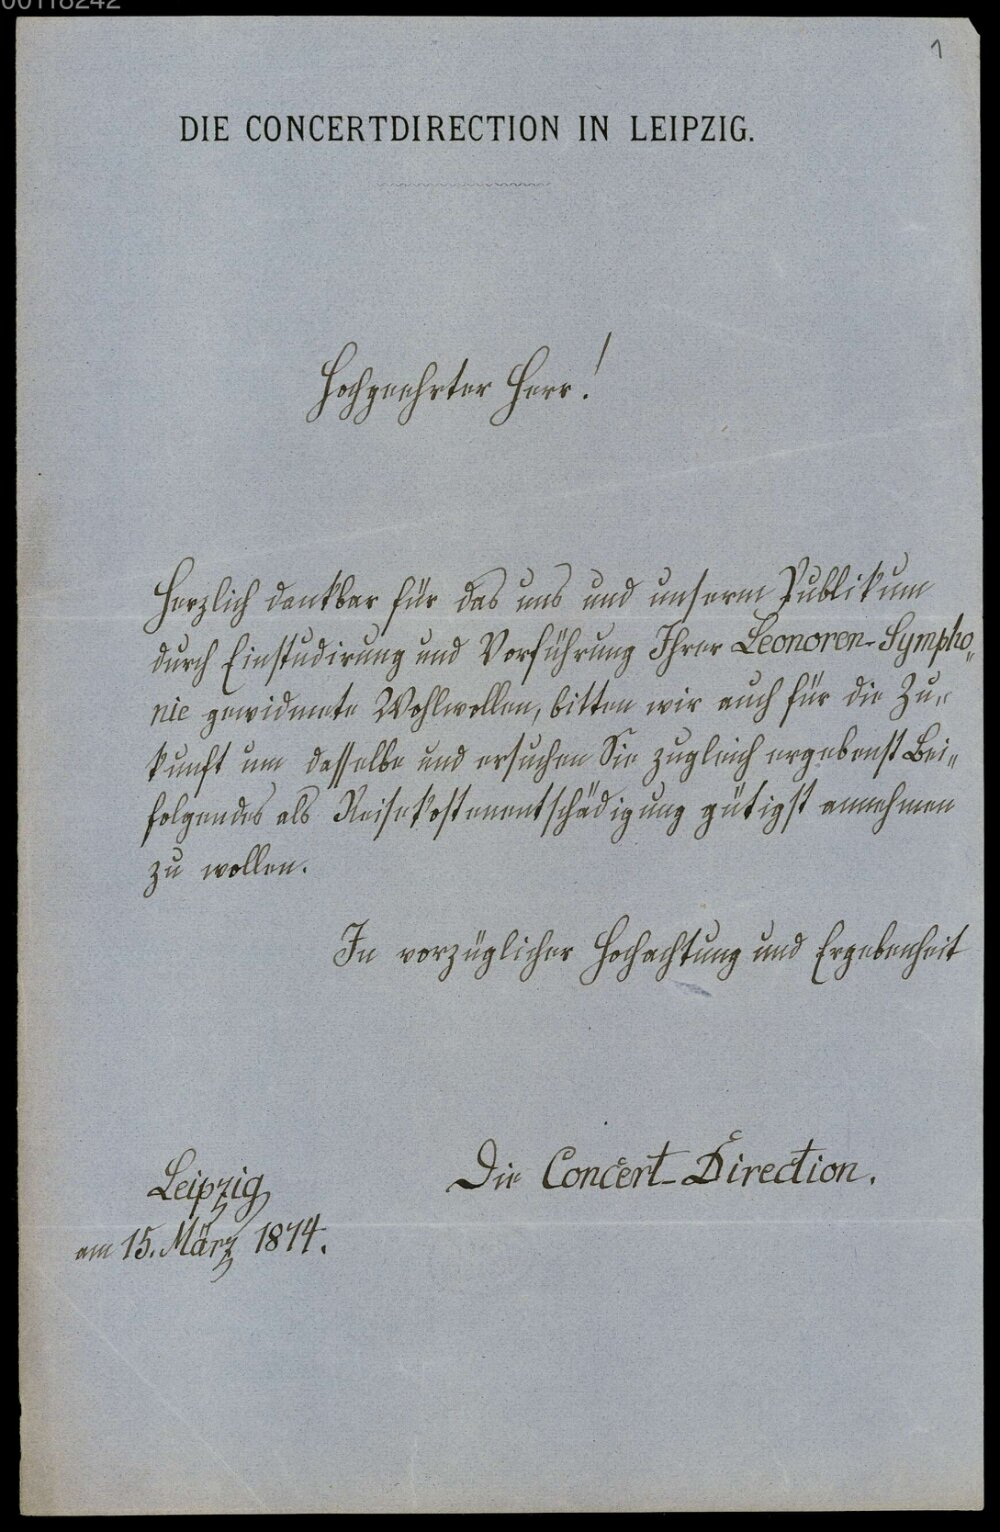 00118242
1
DIE CONCERTDIRECTION IN LEIPZIG.
Hochgeehrter Herr!
Herzlich dankbar für das uns und unserm Publikum
durch Einstudirung und Vorführung Ihrer Leonoren-Sympho„
nie gewidmete Wohlwollen, bitten wir auch für die Zu„
kunft um dasselbe und ersuchen Sie zugleich ergebenst Bei„
folgendes als Reisekostenentschädigung gütigst annehmen
zu wollen.
In vorzüglicher Hochachtung und Ergebenheit
Die Concert-Direction.
Leipzig
am 15. März 1874.